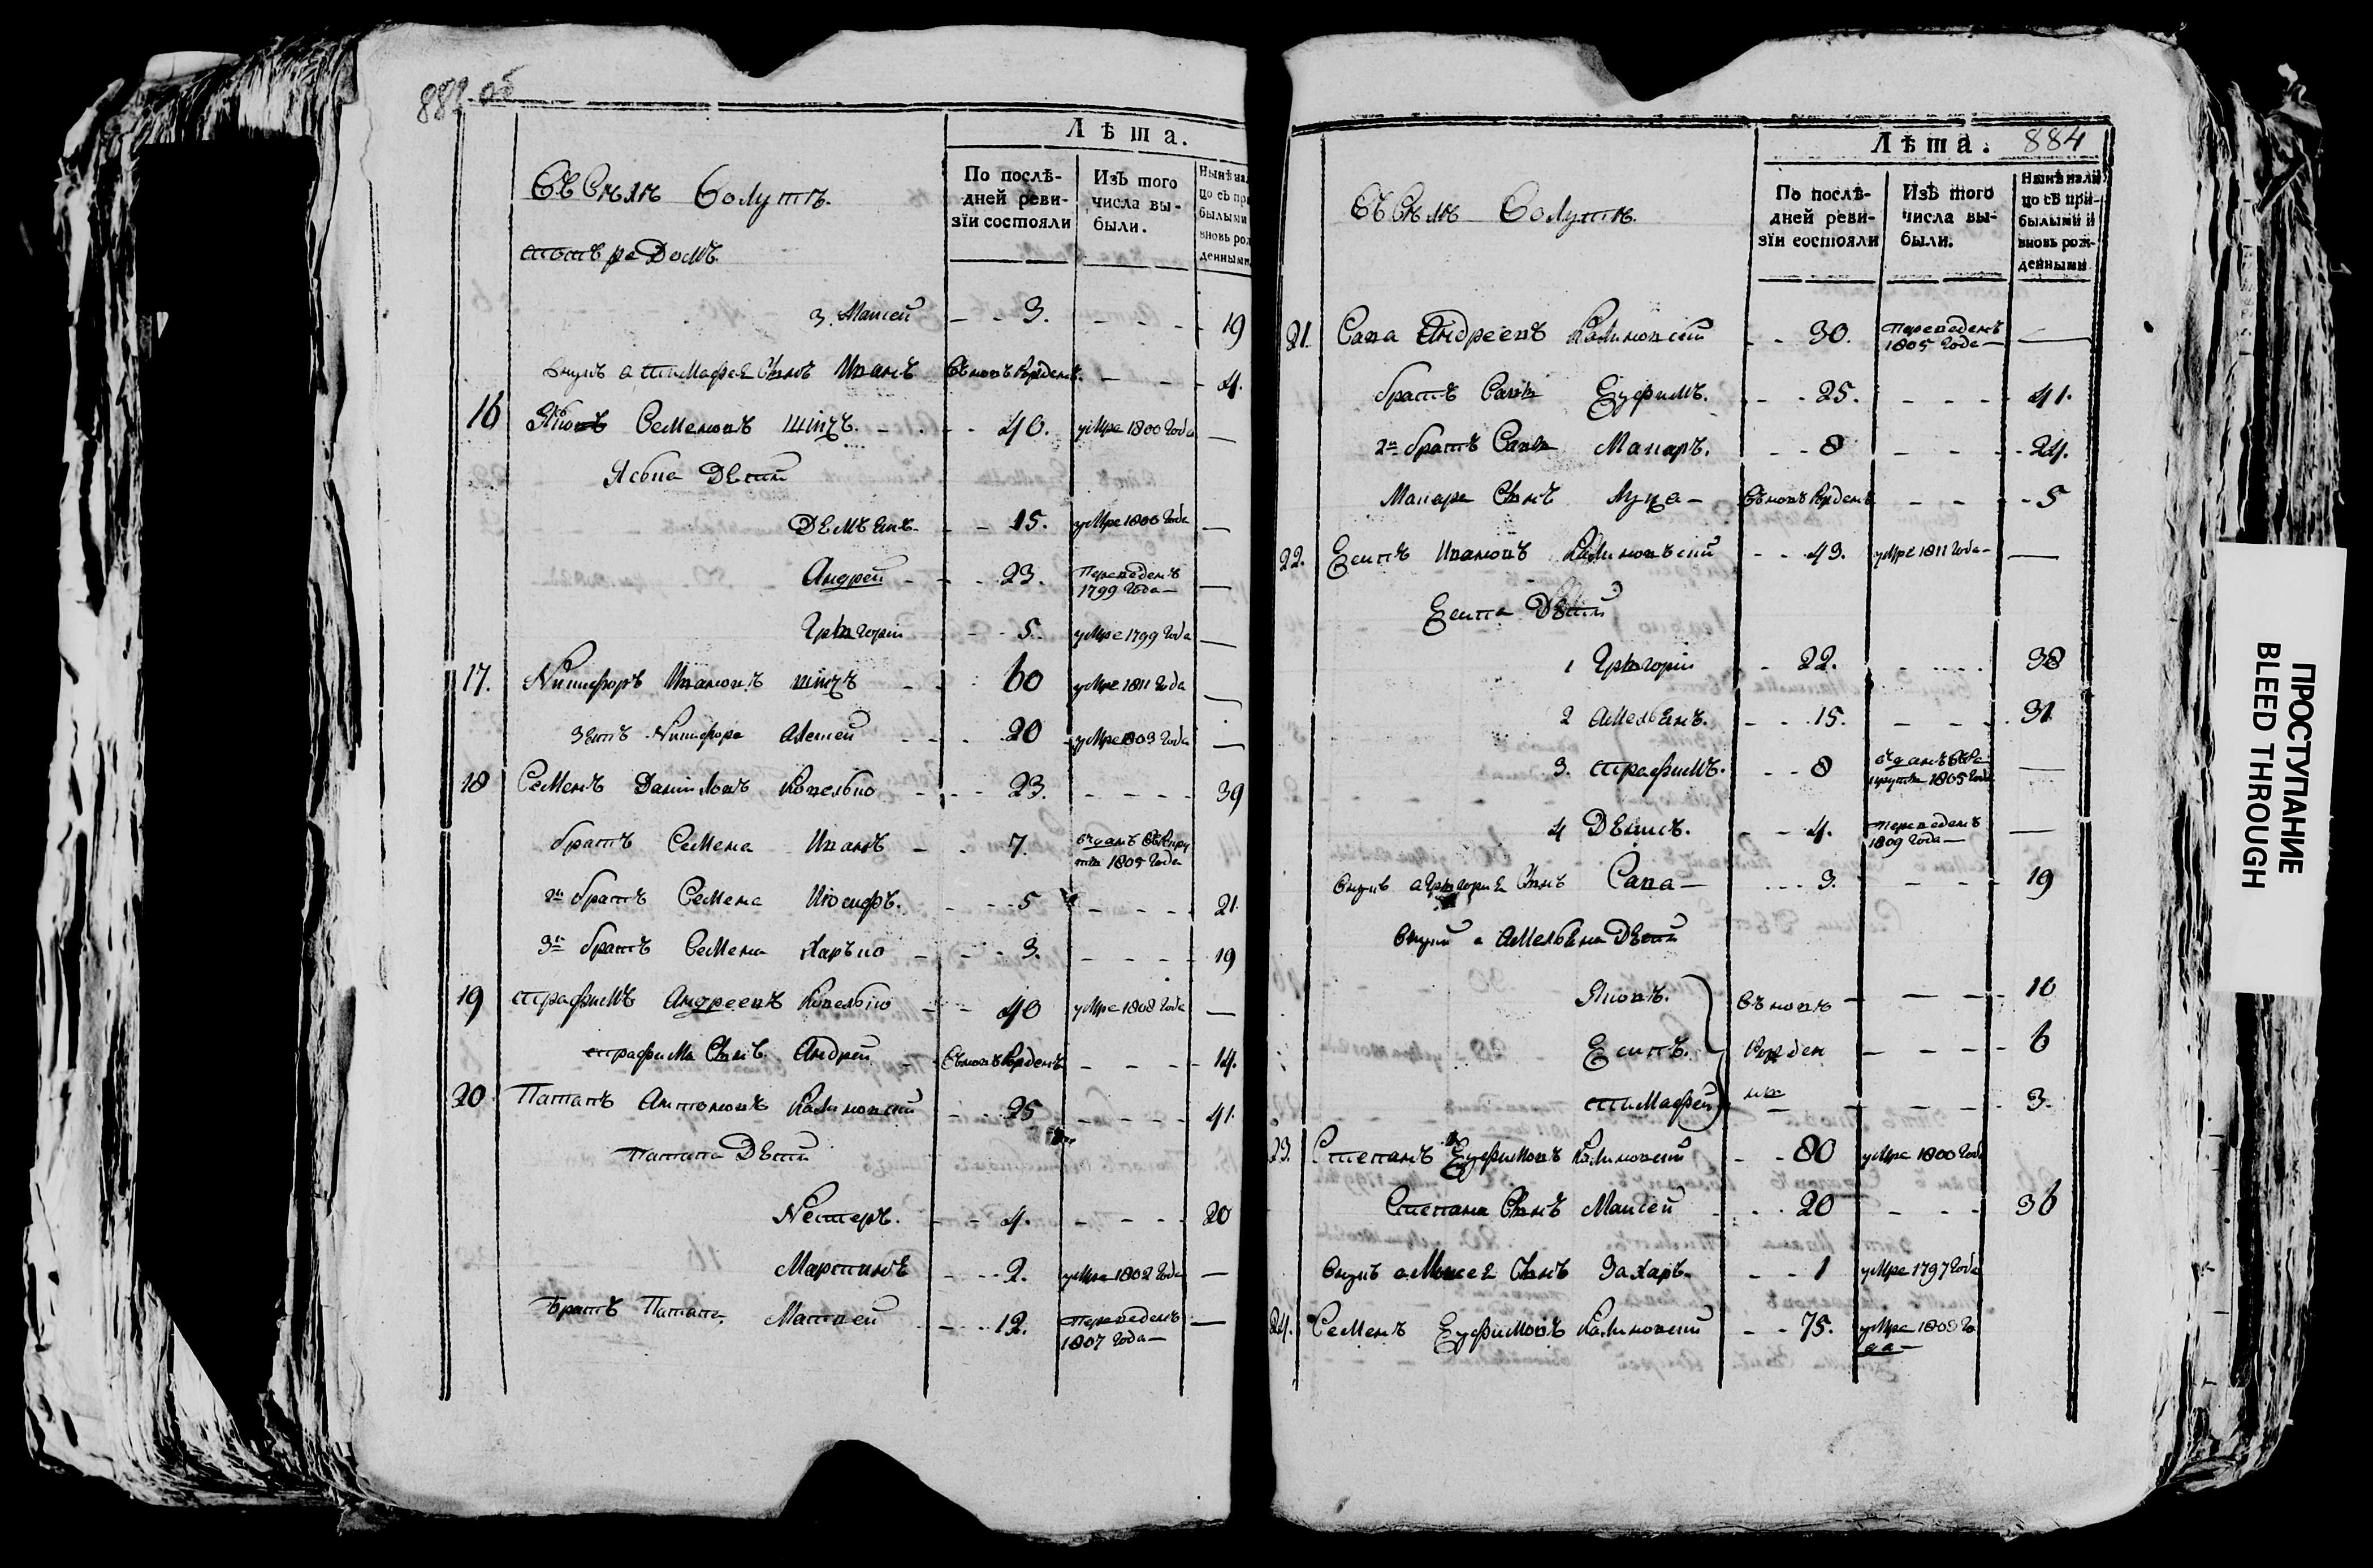 883 об
Лѣта.
По послѣ-
дней реви-
зїи состояли
Изъ того
числа вы-
были.
Нынѣ на
цо съ пр
былыми
вновь рож
денными
Въ Селѣ Солутѣ.
3. Матей - - 3. - - - 19
внукъ а тимафея Сынъ Иванъ Въновъ Рожденъ. - - - 4.
16 Яковъ Семеновъ - - 40. умре 1800 Года —
Якова Дети
Демъянъ - - 15. умре 1800 Года —
Андрей - - - 23. Переведенъ
1799 Года — —
Григорій - - 5. умре 1799 Года —
17. Никифоръ Ивановъ - - 60 умре 1811 Года —
Зять Никифора Алексей - - 20 умре 1803 Года —
18 Семенъ Данилов Ковелько - - - 23. - - - - 39
братъ Семена Иванъ - - 7. въданъ въ Рекру
ти 1805 Года
2й братъ Семена Иосифъ. - - - 5 - - - - 21.
3й братъ Семена Харько - - - 3. - - - - 19
19 трафимъ Андреевъ Ковелько - - 40 умре 1808 Года —
трафима Сынъ Андрей - Въновъ Рожденъ - - - - 14.
20 Патапъ Антоновъ Калиновский - - 25 - - - - 41.
Патапа Дети
Нестеръ. - - 4. - - - - 20
Мартинъ - - - 2. умре 1802 Года —
Братъ Патапа Матвей - - - 12. Переведенъ
1807 Года — —
Лѣта. 884
По послѣ-
дней реви-
зїи состояли
Изъ того
числа вы-
были.
Нынѣ нали
цо съ при-
былыми и
вновь рож-
денными
Въ Селѣ Солутѣ.
21. Сава Андреевъ Калиновский - - 30. Переведенъ
1805 Года — —
братъ Савы Еуфимъ. - - - 25. - - - - 41.
2й братъ Савы Макаръ. - - - 8 - - - - 24.
Макара Сынъ Лука - Въновъ Рожденъ - - - 5
22. Есипъ Ивановъ Калиновъский - - 43. умре 1811 Года - —
Есипа Дети
1 Григорій - 22. - - - - 38
2 Амельянъ. - - - 15. - - - . 31
3. трафимъ. - - - 8 въданъ въ Ре-
круты 1805 Года —
4 Денисъ. - - - 4. Переведенъ
1809 Года — —
Внукъ а Григория Сынъ Сава - - - - 3. - - - 19
Внуки а Амельяна Дети
Яковъ. Въновъ - - - - 10
Есипъ. Рожден - - - - 6
тимафей ны - - - - 3.
23. Степанъ Еуфимовъ Калиновский - - 80 умре 1800 Года
Степана Сынъ Матвей - - - 20 - - - 36
Внукъ а Сынъ Захаръ. - - - 1 умре 1797 Года
24. Семенъ Еуфимовъ Калиновский - - 75. умре 1803 Го
да -
ПРОСТУПАНИЕ
BLEED THROUGH